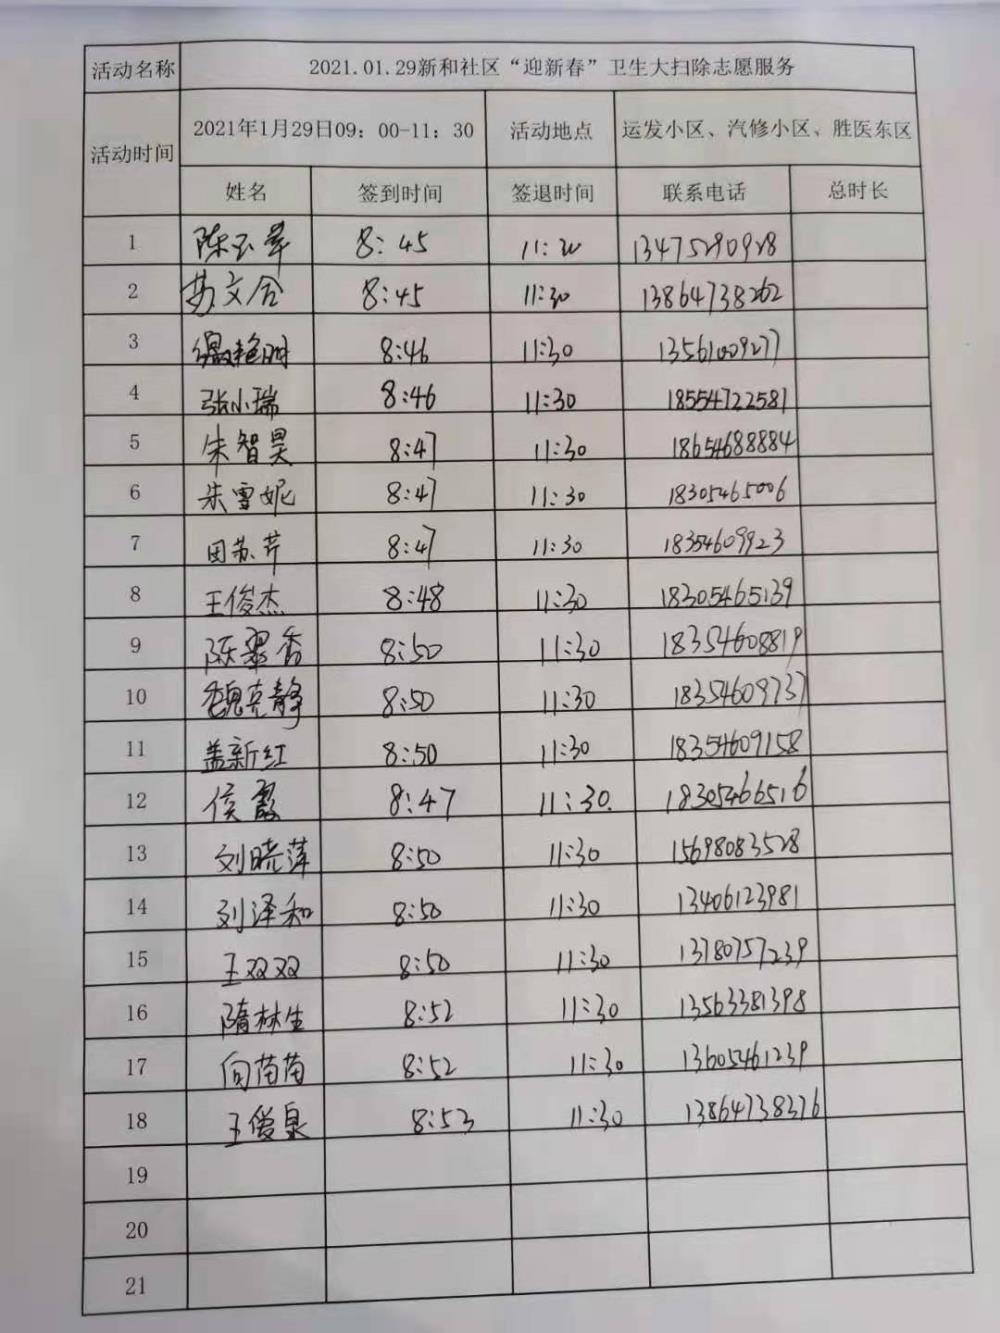 活动名称 2021.01.29新和社区“迎新春”卫生大扫除志愿服务
活动时间 2021年1月29日09：00-11：30 活动地点 运发小区、汽修小区、胜医东区
姓名 签到时间 签退时间 联系电话 总时长
1 陈玉萍 8:45 11:30 13475290928
2 苏文合 8:45 11:30 13864738262
3 8:46 11:30 13561009277
4 张小瑞 8:46 11:30 18554722581
5 朱智昊 8:47 11:30 18654688884
6 朱雪妮 8:47 11:30 18305465006
7 田苏芹 8:47 11:30 18354609923
8 王俊杰 8:48 11:30 18305465139
9 陈翠香 8:50 11:30 18354608819
10 魏克静 8:50 11:30 18354609737
11 盖新红 8:50 11:30 18354609158
12 侯霞 8:47 11:30. 18305466516
13 刘晓萍 8:50 11:30 15698083528
14 刘泽和 8:50 11:30 13406123981
15 王双双 8:50 11:30 13780757239
16 隋林生 8:52 11:30 13563381398
17 向苗苗 8:52 11:30 13605461239
18 王俊泉 8:53 11:30 13864738376
19
20
21